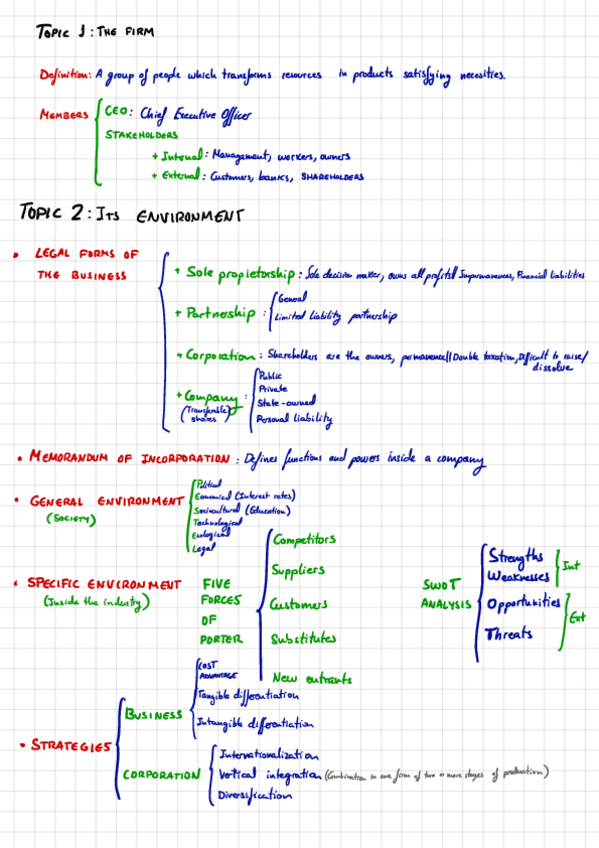 TOPIC 1: THE FIRM
Definition: A group of people which transforms resources in products satisfying necesities.
MEMBERS
CEO: Chief Executive Officer
STAKEHOLDERS
+ Internal: Management, workers, owners
+ External: Customers, banks, SHAREHOLDERS
TOPIC 2: ITS ENVIRONMENT
• LEGAL FORMS OF
THE BUSINESS
+ Sole propietorship: Sole decision maker, owns all profits// Impermanences, Financial liabilities
+ Partnership:
General
Limited liability partnership
+ Corporation: Shareholders are the owners, permanence// Double taxation, Difficult to raise/
dissolve
+ Company:
(Transferable shares)
Public
Private
State-owned
Personal liability
• MEMORANDUM OF INCORPORATION: Defines functions and powers inside a company
• GENERAL ENVIRONMENT
(SOCIETY)
Political
Economical (Interest rates)
Sociocultural (Education)
Technological
Ecological
Legal
• SPECIFIC ENVIRONMENT
(Inside the industry)
FIVE
FORCES
OF
PORTER
Competitors
Suppliers
Customers
Substitutes
New entrants
SWOT
ANALYSIS
Strengths
Weaknesses
Int
Opportunities
Threats
Ext
• STRATEGIES
BUSINESS
COST
ADVANTAGE
Tangible differentiation
Intangible differentiation
CORPORATION
Internationalization
Vertical integration (Combination in one firm of two or more stages of production)
Diversification